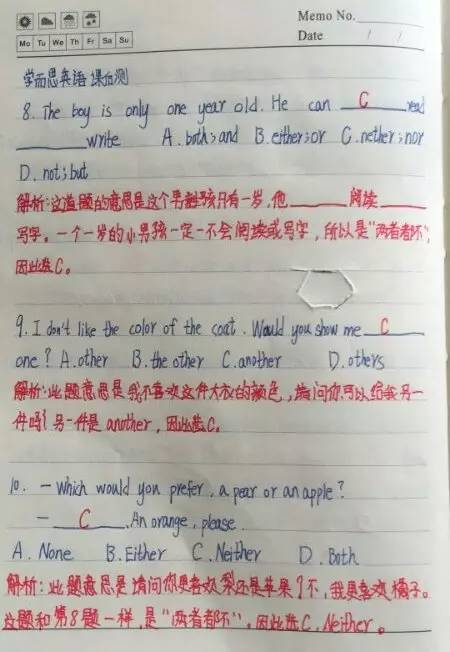 Memo No.
Mo Tu We Th Fr Sa Su
Date / /
学而思英语 课后测
8. The boy is only one year old. He can C read
write A. both; and B. either; or C. nether; nor
D. not; but
解析:这道题的意思是这个男孩只有一岁,他 阅读
写字。一个一岁的小男孩一定不会阅读或写字,所以是"两者都不",
因此选C。
9. I don't like the color of the coat. Would you show me C
one? A. other B. the other C. another D. others
解析:此题意思是我不喜欢这件大衣的颜色,请问你可以给我另一
件吗?另一件是 another,因此选C。
10. — Which would you prefer, a pear or an apple?
— C . An orange, please.
A. None B. Either C. Neither D. Both
解析:此题意思是请问你更喜欢梨还是苹果?不,我更喜欢橘子。
这题和第8题一样,是"两者都不",因此选C. Neither。